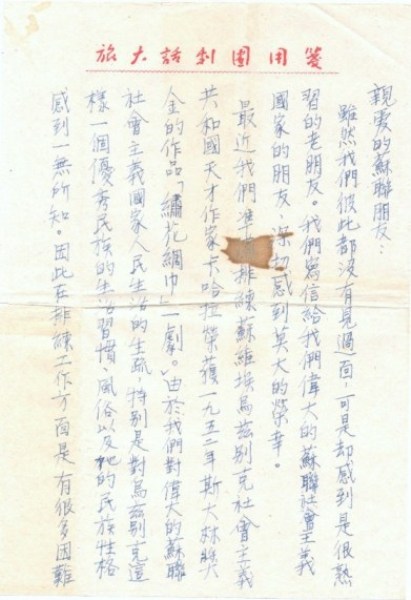 旅大話劇團用箋
親愛的蘇聯朋友：
雖然我們彼此都沒有見過面，可是却感到是很熟
習的老朋友。我們寫信給我們偉大的蘇聯社會主義
國家的朋友，深切感到莫大的榮幸。
最近我們準 排練蘇維埃烏兹别克社會主義
共和國天才作家卡哈拉榮獲一九五二年斯大林獎
金的作品「繡花綢巾」一劇。由於我們對偉大的蘇聯
社會主義國家人民生活的生疏，特别是對烏兹别克這
樣一個優秀民族的生活習慣、風俗以及他的民族性格
感到一無所知。因此在排練工作方面是有很多困難